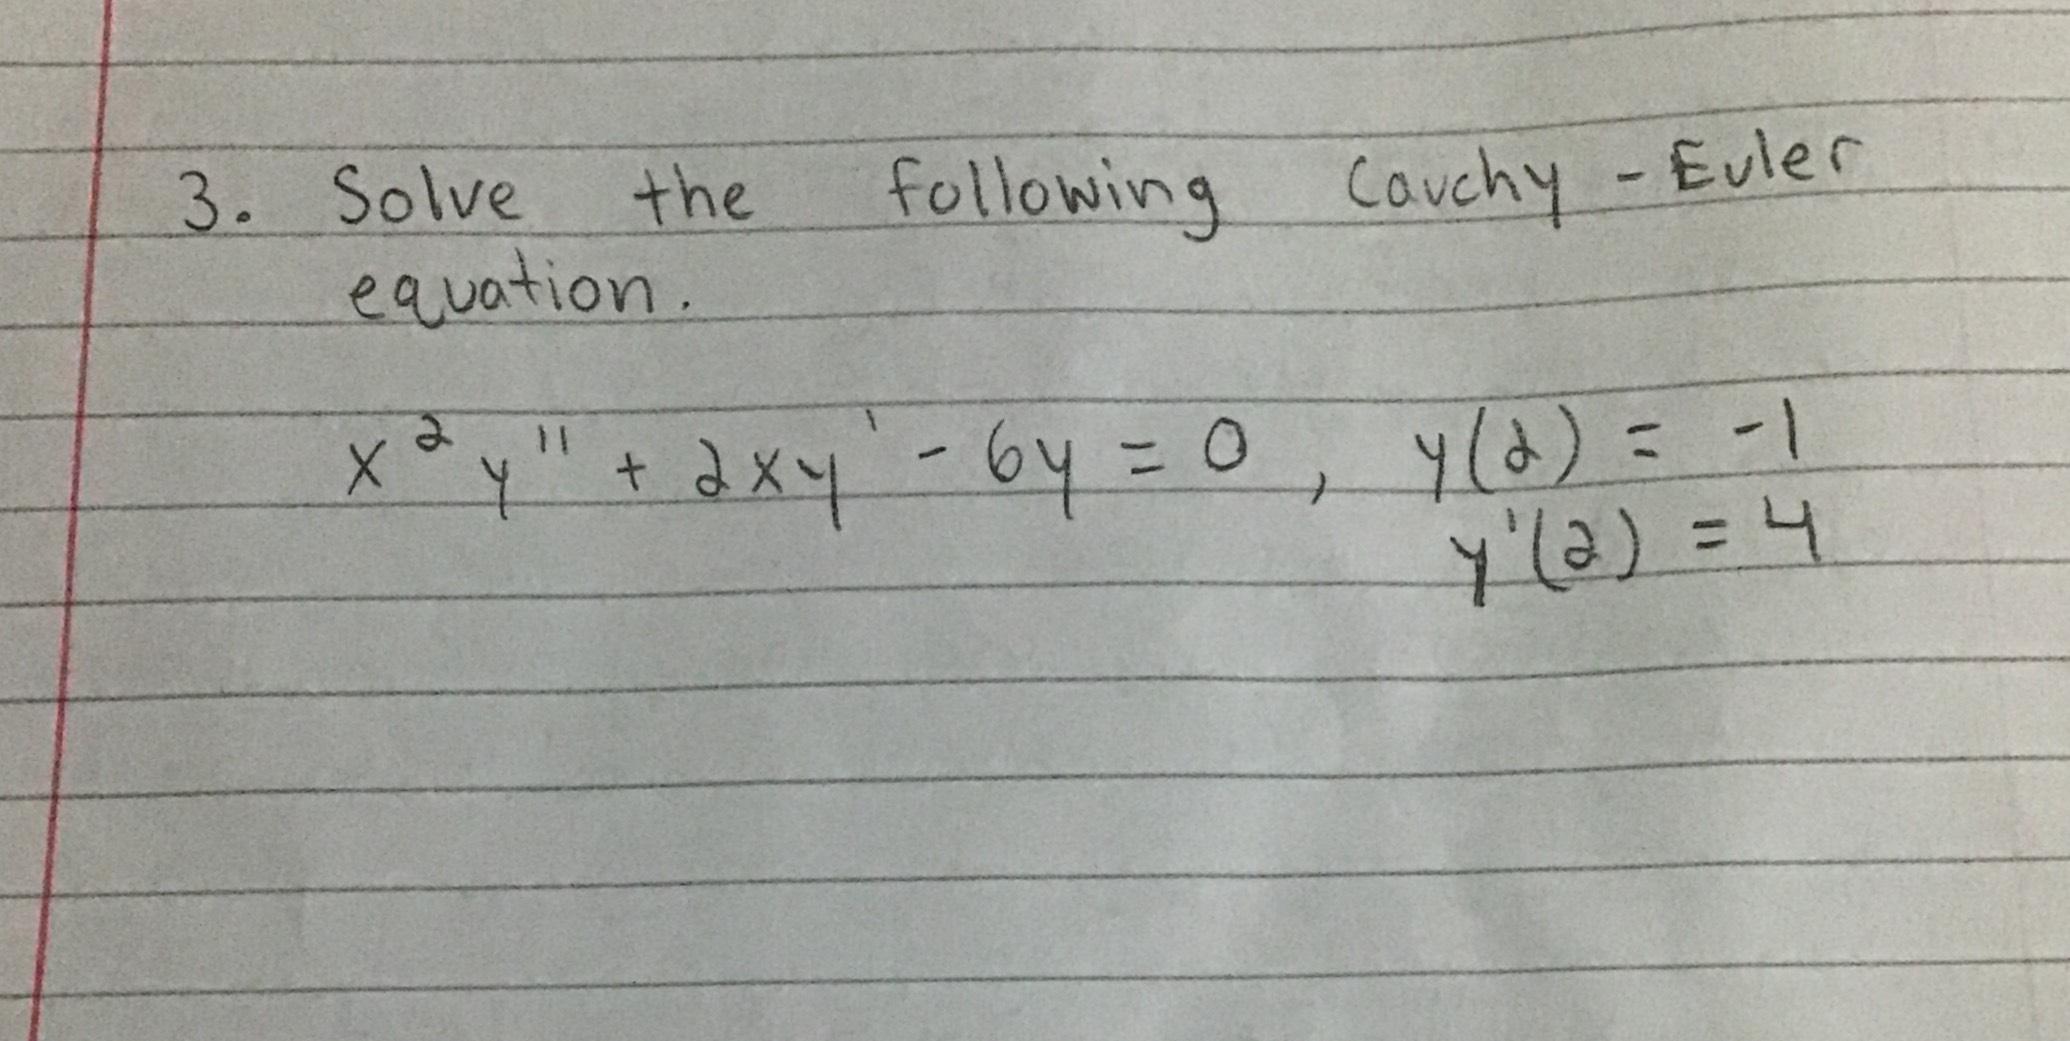 3. Solve the following Cauchy - Euler
equation.
x² y'' + 2xy' - 6y = 0 , y(2) = -1
y'(2) = 4